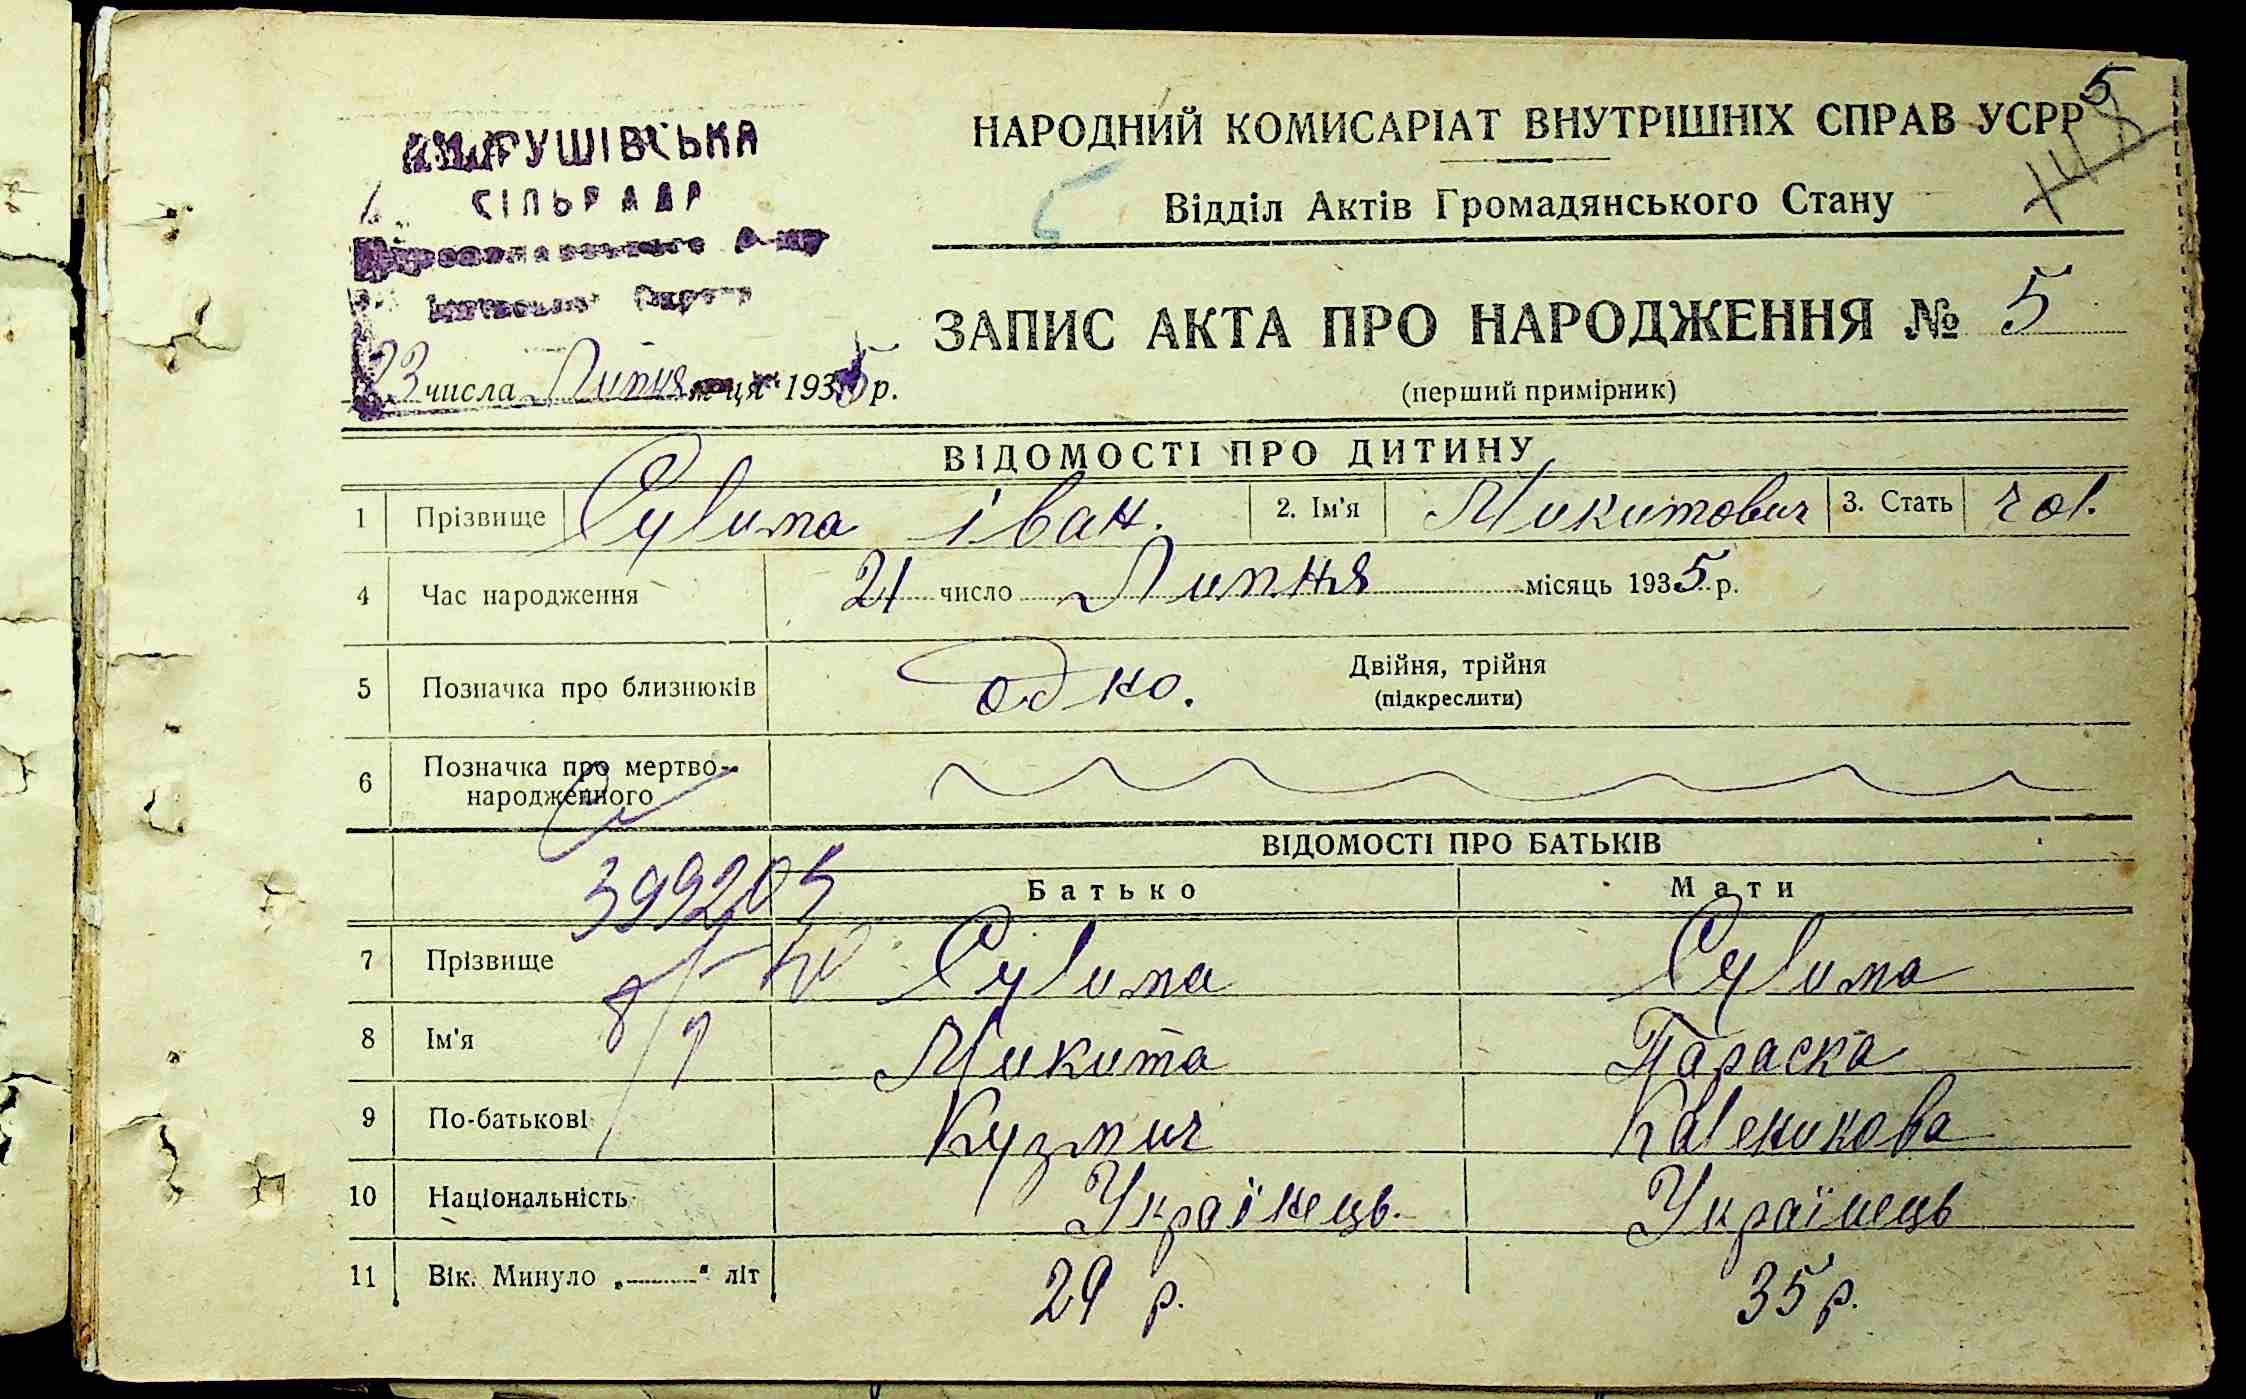 5
НАРОДНИЙ КОМИСАРІАТ ВНУТРІШНІХ СПРАВ УСРР
Відділ Актів Громадянського Стану
АНДРУШІВСЬКА
СІЛЬРАДА
ЗАПИС АКТА ПРО НАРОДЖЕННЯ № 5
(перший примірник)
23 числа Липня м-ця 1935 р.
ВІДОМОСТІ ПРО ДИТИНУ
1 Прізвище Сулима іван. 2. Ім'я Микитович 3. Стать чол.
4 Час народження 21 число Липня місяць 1935 р.
5 Позначка про близнюків одно. Двійня, трійня
(підкреслити)
6 Позначка про мертво-
народженного
ВІДОМОСТІ ПРО БАТЬКІВ
399205
Батько Мати
7 Прізвище Сулима Сулима
8 Ім'я Микита Параска
9 По-батькові Кузмич Каленикова
10 Національність Українець. Українець
11 Вік. Минуло „ “ літ 29 р. 35 р.